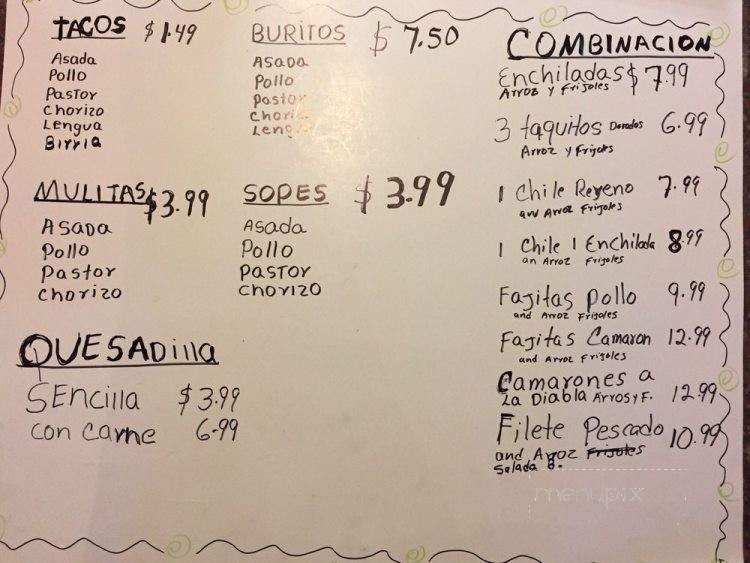 TACOS $1.49
Asada
Pollo
Pastor
Chorizo
Lengua
Birria
BURITOS $ 7.50
Asada
Pollo
Pastor
Chori
Leng
MULITAS $3.99
Asada
Pollo
Pastor
Chorizo
SOPES $ 3.99
Asada
Pollo
PASTOR
Chorizo
QUESADilla
SEncilla $3.99
con carne 6.99
COMBINACION
Enchiladas $7.99
Arroz y Frijoles
3 taquitos Dorados 6.99
Arroz y Frijoles
1 Chile Reyeno 7.99
and Arroz Frijoles
1 Chile 1 Enchilada 8.99
an Arroz Frijoles
Fajitas pollo 9.99
and Arroz Frijoles
Fajitas Camaron 12.99
and Arroz Frijoles
Camarones a
La Diabla Arros y F. 12.99
Filete Pescado 10.99
and Arroz Frijoles
Salada B.
menupix